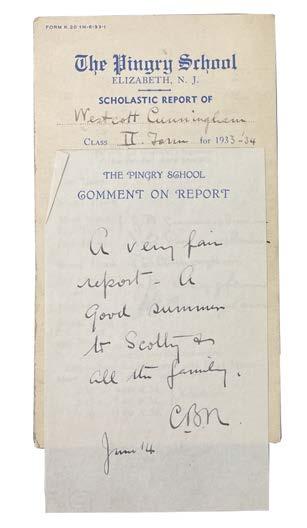 FORM R.20 1M-6-33-1
The Pingry School
ELIZABETH, N. J.
SCHOLASTIC REPORT OF
Westcott Cunningham
CLASS II Form for 1933-'34
THE PINGRY SCHOOL
COMMENT ON REPORT
A very fair
report - A
Good summer
to Scotty &
all the family.
CBN
June '4